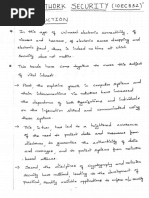 NETWORK SECURITY (10EC832)
DUCTION
* In this age of universal electronic connectivity, of
viruses and hackers, of electronic eaves dropping and
electronic fraud, there is indeed no time at which
security does not matter.
* Two trends have come together to make this subject
of vital interest
* First, the explosive growth in computer systems and
their interconnections via networks has increased
the dependence of both organizations and individuals
on the information stored and communicated using
these systems.
* This in turn, has led to a heightened awareness
of the need to protect data and resources from
disclosure, to guarantee the authenticity of data
and messages, and to protect systems from network-
based attacks.
* Second, the disciplines of cryptography and network
security have matured, leading to the development of
practical, readily available applications to enforce n/w security